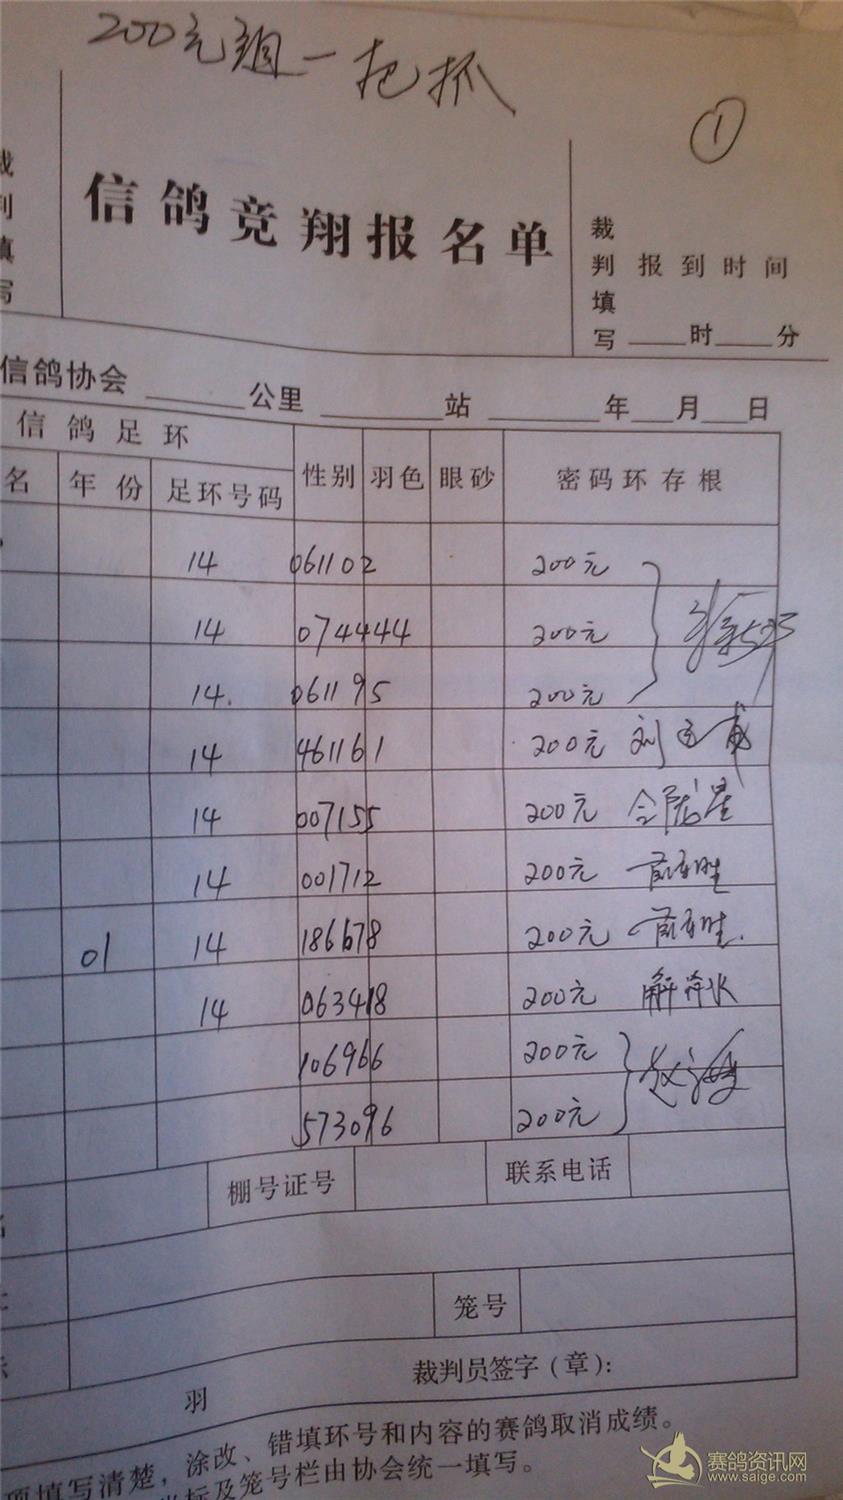 200元组一把抓
①
裁判填写
信鸽竞翔报名单
裁判填写
报到时间
____时____分
信鸽协会 ______公里 ______站 ______年___月___日
信鸽足环
名 年份 足环号码 性别 羽色 眼砂 密码环存根
14 061102 200元
14 074444 200元
14. 061195 200元
14 461161 200元 刘
14 007155 200元
14 001712 200元
01 14 186678 200元
14 063418 200元 解
106966 200元
573096 200元 赵
棚号证号 联系电话
笼号
裁判员签字(章):
羽
项填写清楚，涂改、错填环号和内容的赛鸽取消成绩。
坐标及笼号栏由协会统一填写。
赛鸽资讯网
www.saige.com